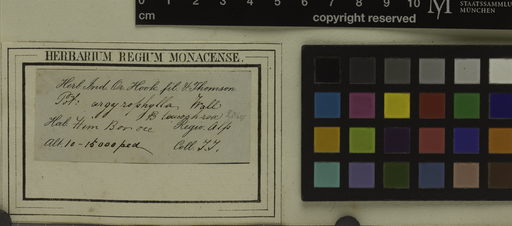 0 1 2 3 4 5 6 7 8 9 10
cm
copyright reserved
STAATSSAMMLU
MÜNCHEN
HERBARIUM REGIUM MONACENSE.
Herb. Ind. Or. Hook. fil. & Thomson
Pot. argyrophylla Wall
B leucochroa
Hab. Him. Bor. occ. Regio Alp
Alt. 10-15000 ped Coll. T.T.